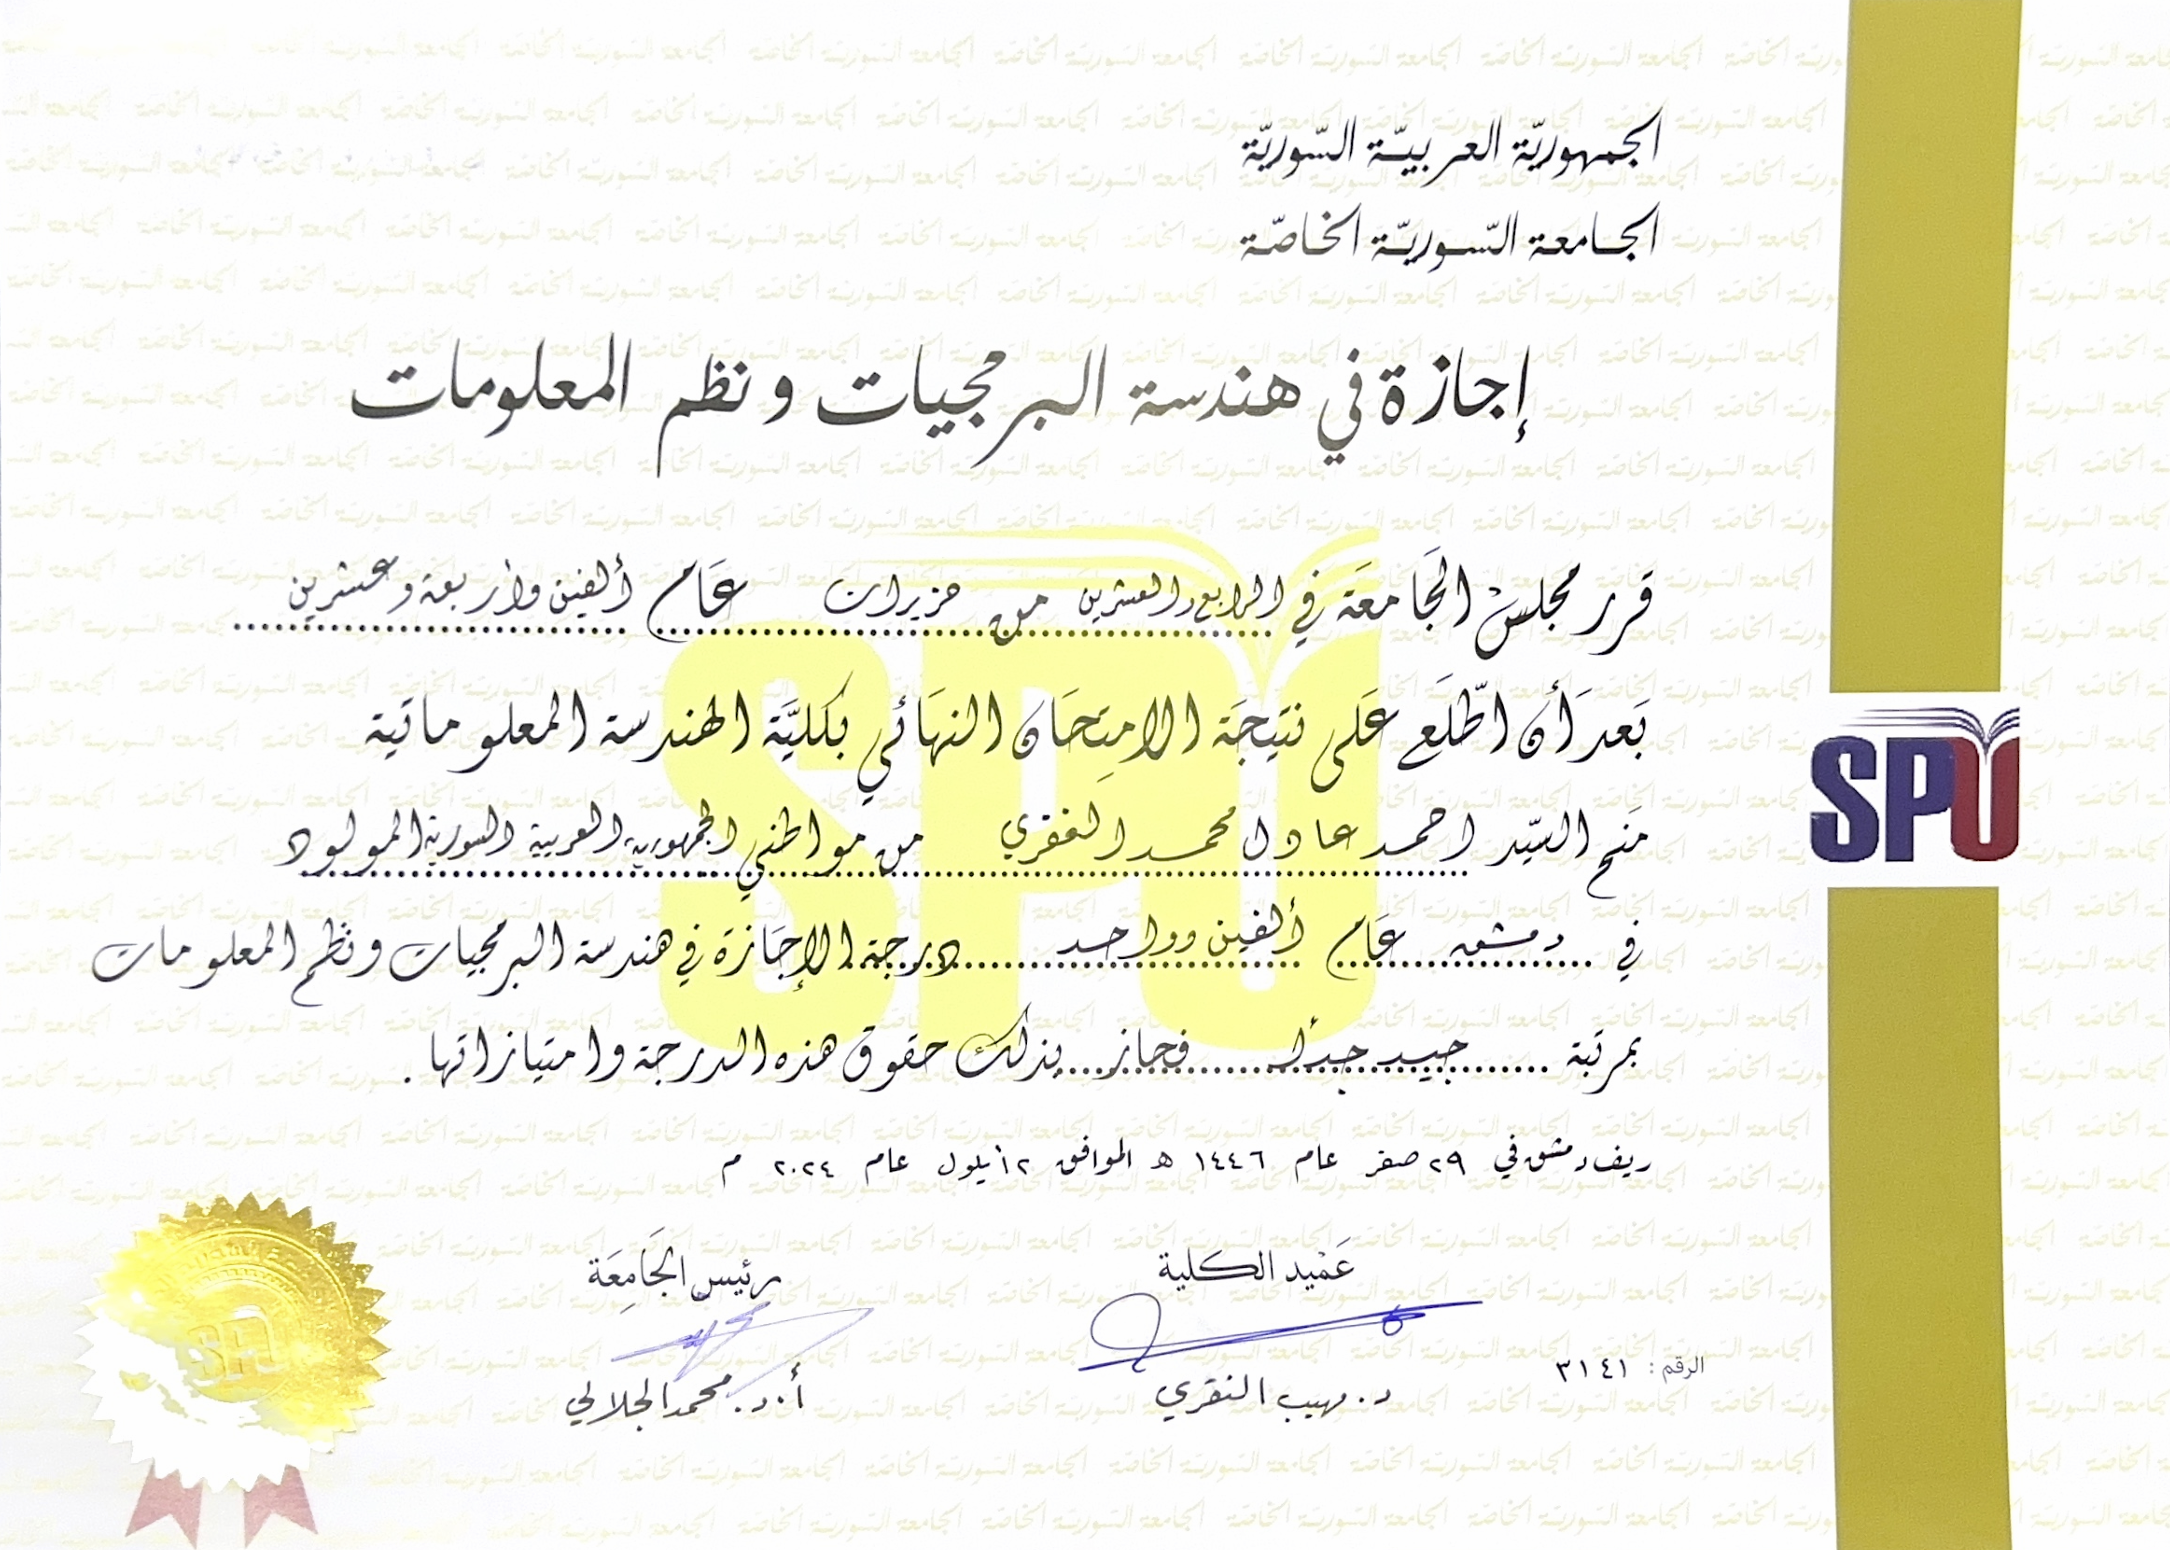 الجمهوريّة العربيّة السّوريّة
الجامعة السّوريّة الخاصّة
إجازة في هندسة البرمجيات ونظم المعلومات
قرر مجلس الجَامعَة في الرابع والعشرين من حزيران عَام ألفين وأربعة وعشرين
بَعدَ أن اطّلَع عَلى نتيجَة الامتِحَان النهَائي بكليَّة الهندسة المعلوماتية
مَنح السيّد احمد عادل محمد الفقري من مواطني الجمهورية العربية السورية المولود
في دمشق عَام ألفين وواحد درجة الإجَازة في هندسة البرمجيات ونظم المعلومات
بمرتبة جيد جداً فحاز بذلك حقوق هذه الدرجة وامتيازاتها .
ريف دمشق في ٢٩ صفر عام ١٤٤٦ هـ الموافق ٢ أيلول عام ٢٠٢٤ م
عَمْيد الكلية
رئيس الجَامِعَة
د. مهيب النقري
أ.د. محمد الجلالي
الرقم : ٣١٤١
SPU